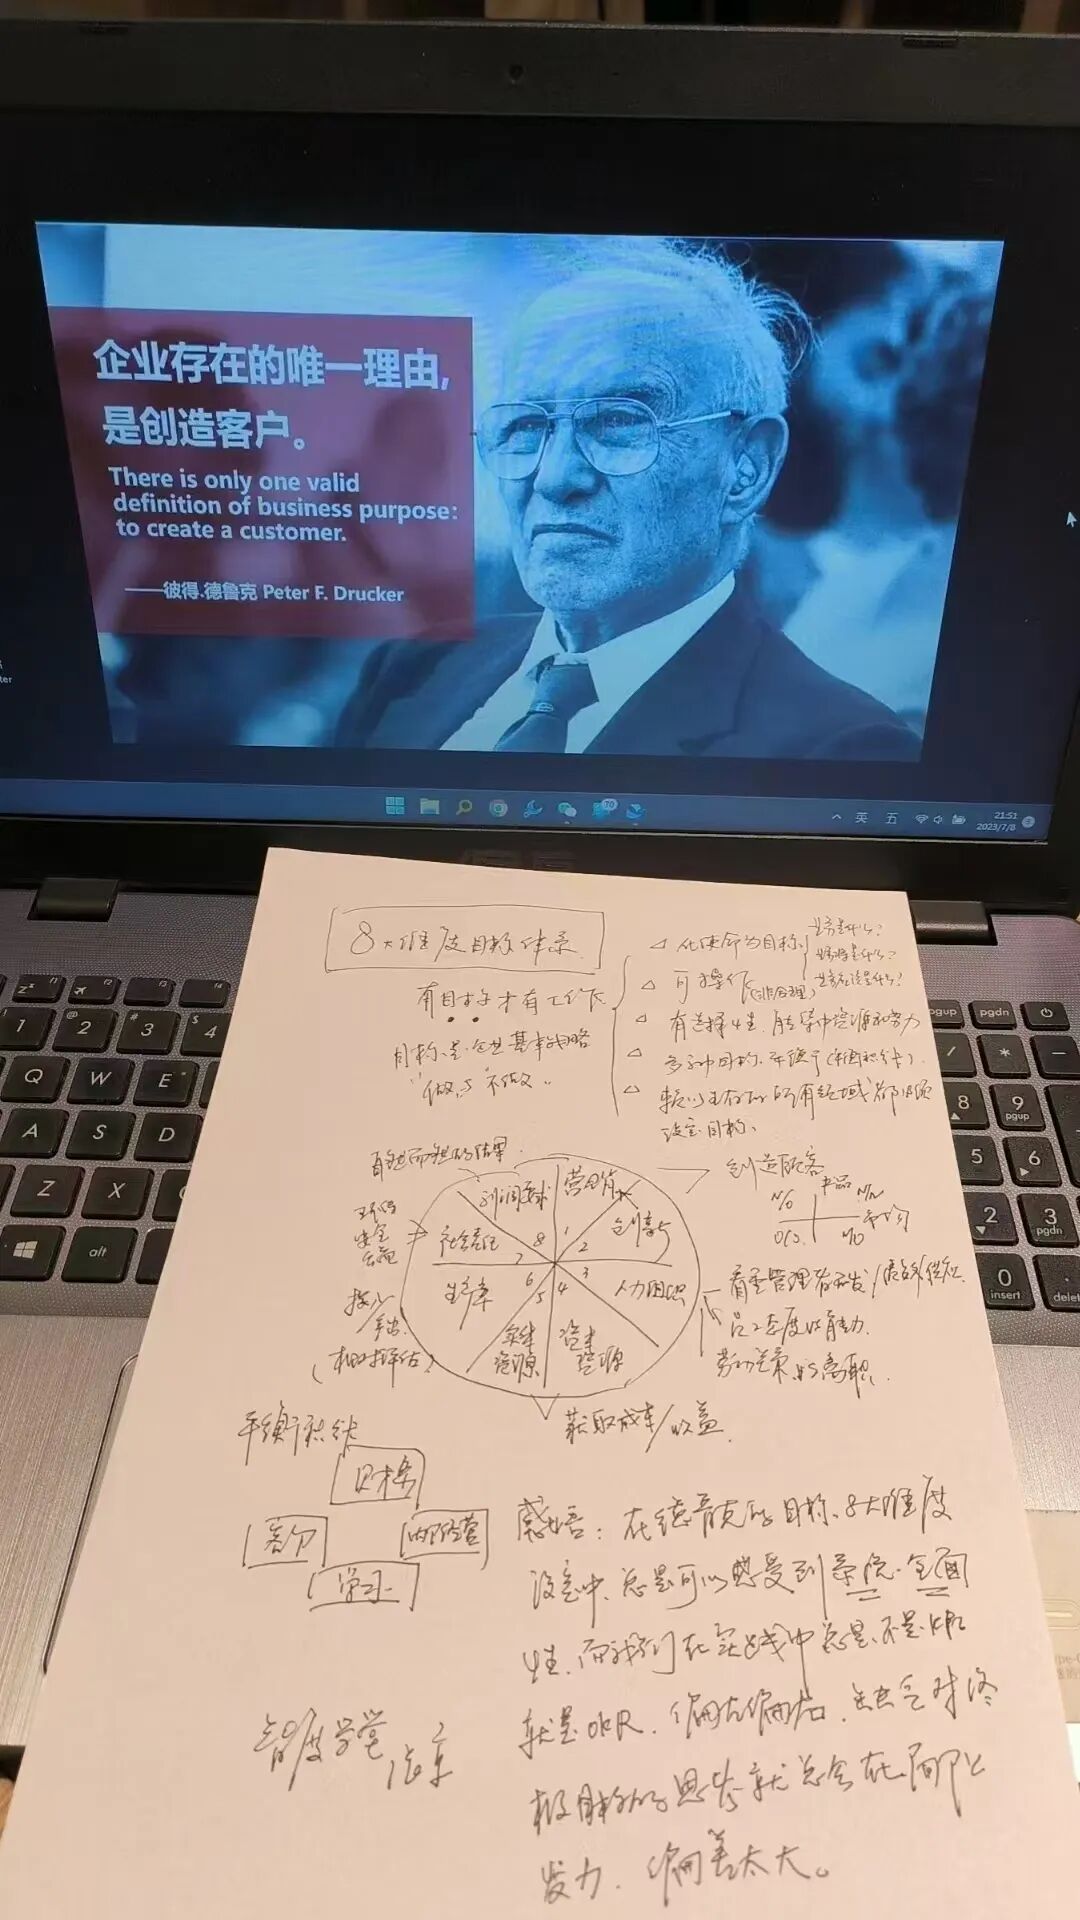 企业存在的唯一理由,
是创造客户。
There is only one valid
definition of business purpose:
to create a customer.
——彼得.德鲁克 Peter F. Drucker
英 五
21:51
2023/7/8
8大维度目标体系
有目标才有工作
目标、是企业基本战略
"做与不做"
△ 化使命为目标
业务是什么?
业务将是什么?
业务应该是什么?
△ 可操作(非合理)
△ 有选择性、能集中资源和努力
△ 多种目标、平衡(平衡积分卡).
△ 赖以生存的所有领域都必须
设定目标、
利润要求
营销
创新
人力组织
资本资源
实体资源
生产率
社会责任
8 1 2 3 4 5 6 7
创造顾客
产品
获取成本/收益
平衡积分卡
财务
客户
内部经营
学习
感悟: 在德鲁克的目标、8大维度
设定中、总是可以感受到系统、全面
性、而我们在实战中总是、不是KPI
就是OKR、偏左偏右、缺乏对终
极目标的思考就总会在局部上
发力、偏差太大。
智度学堂